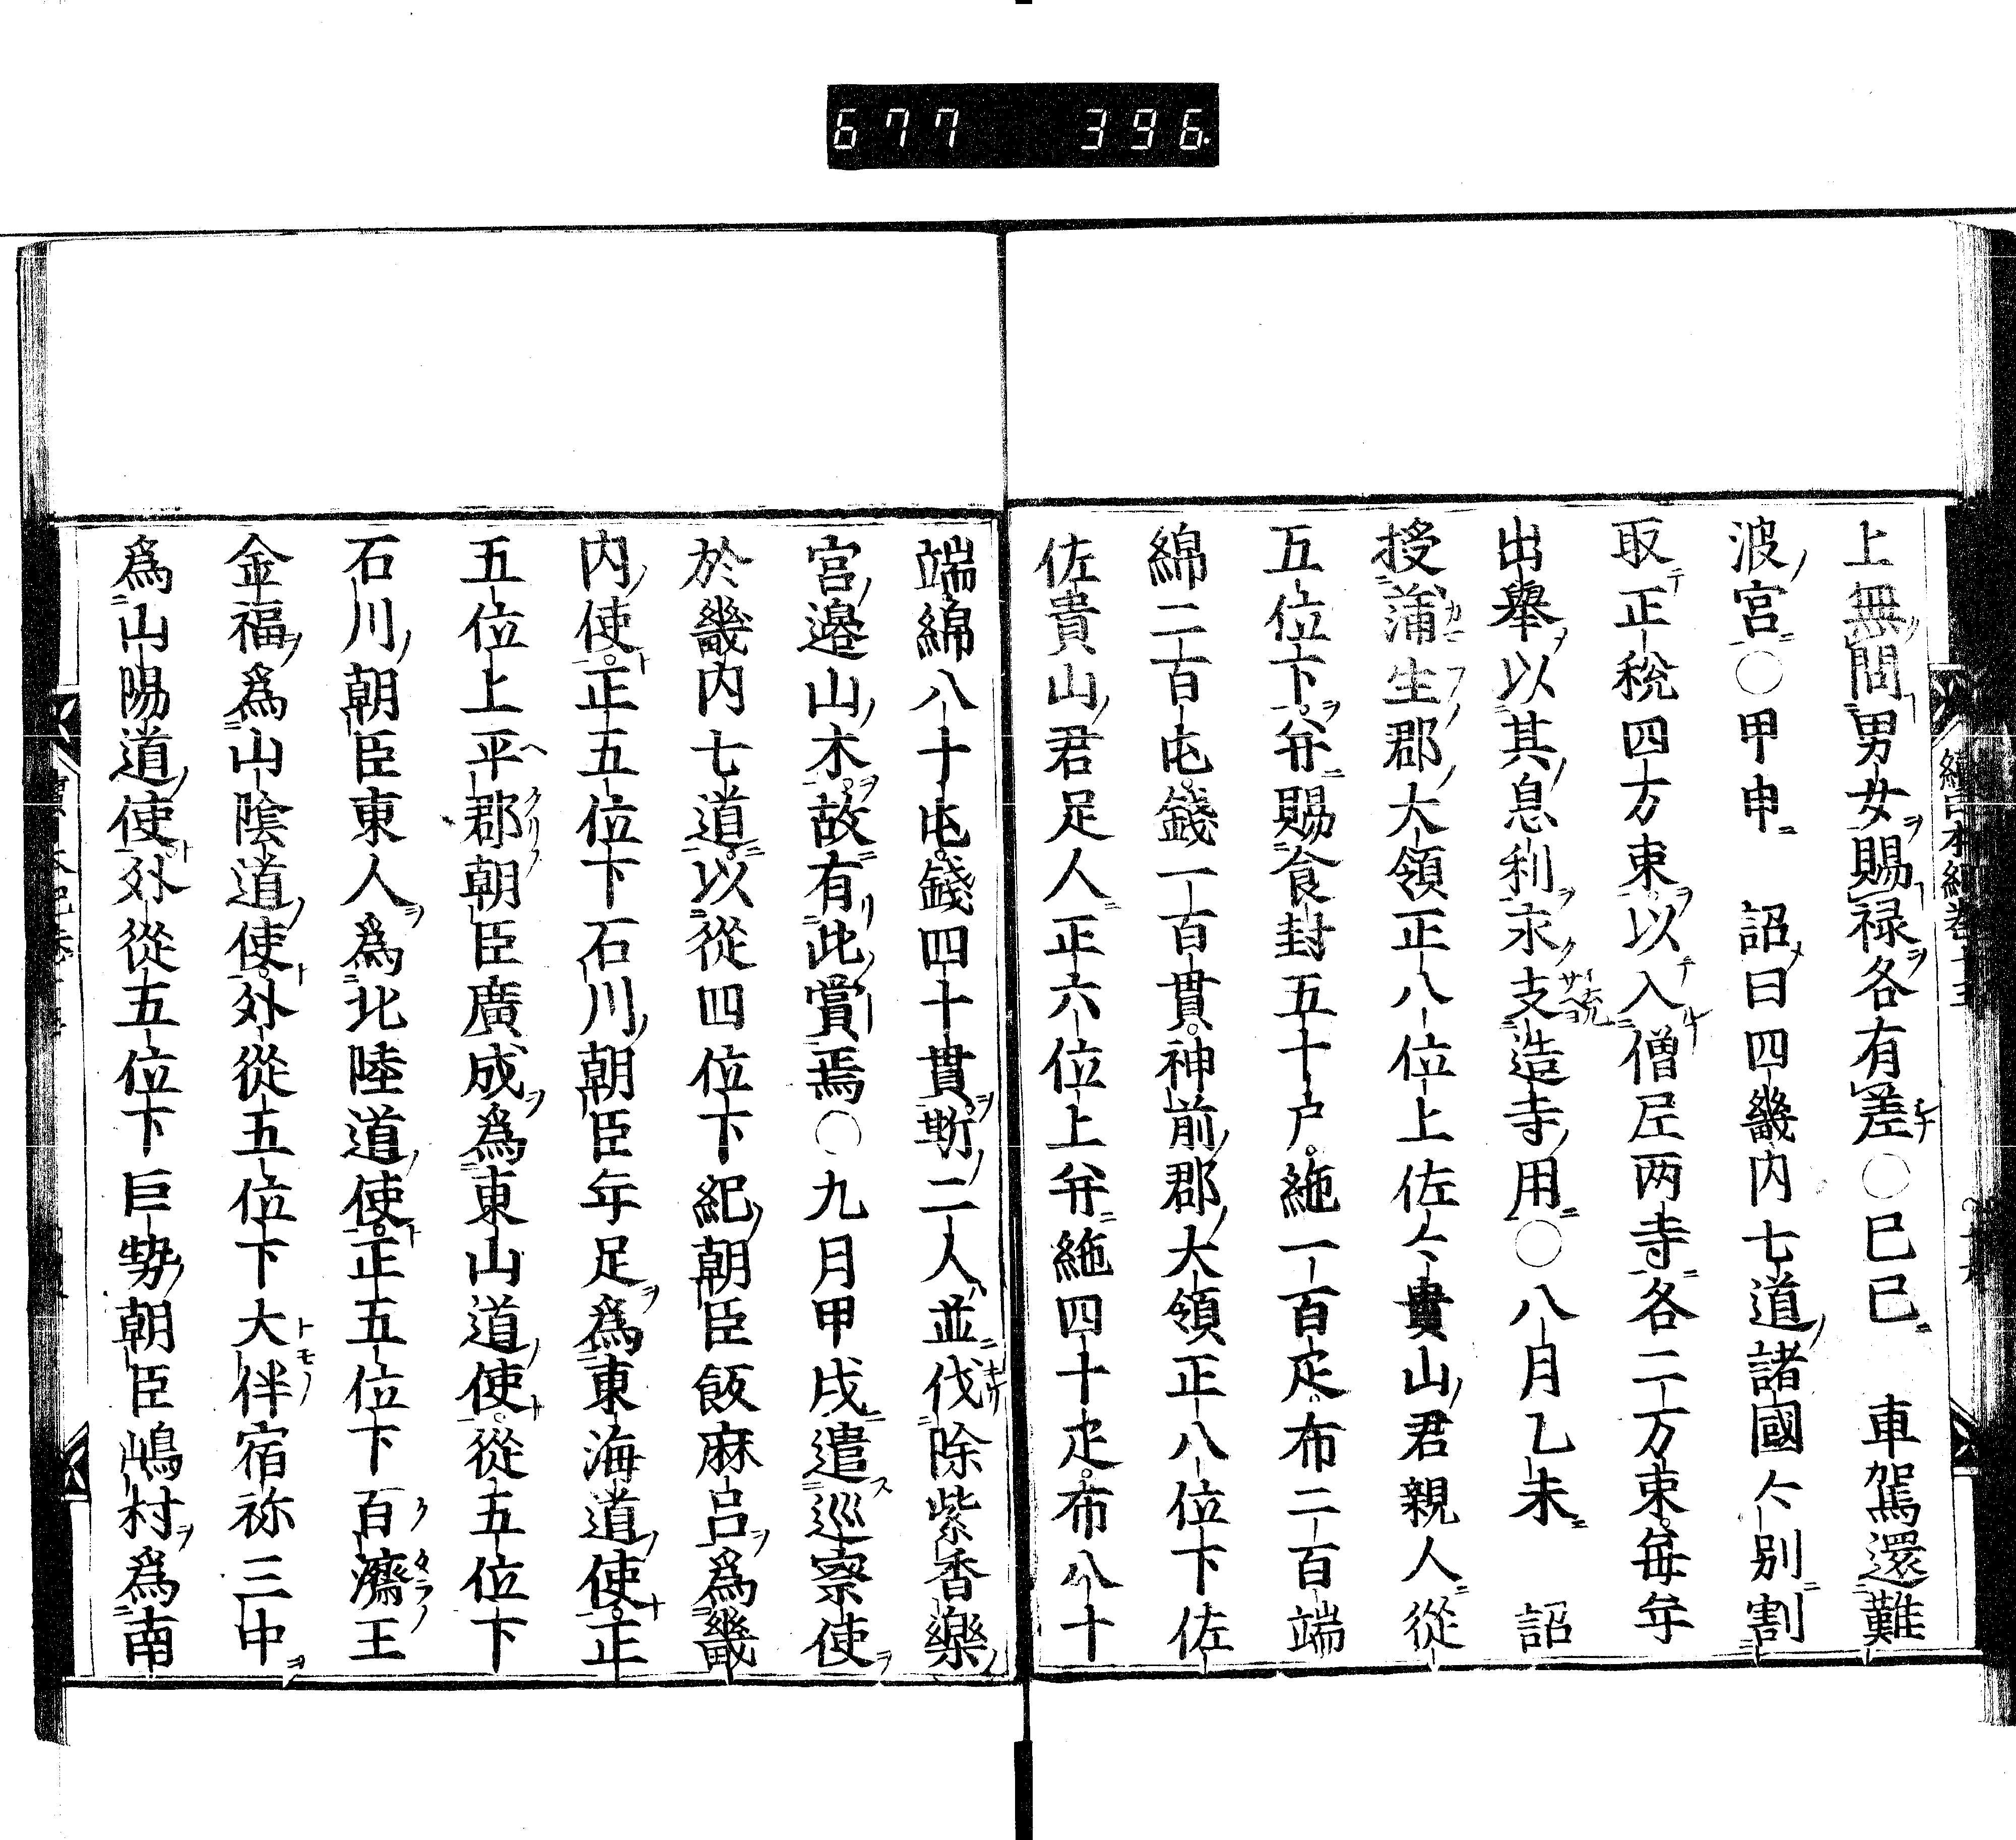 677 396
上無問男女賜祿各有差○巳巳 車駕還難
波宮○甲申 詔曰四畿内七道諸國仒別割
取正稅四万束以入僧尼两寺各二万束每年
出舉以其息利永支造寺用○八月乙未 詔
授蒲生郡大領正八位上佐〻貴山君親人從
五位下并賜食封五十户絁一百疋布二百端
綿二百屯錢一百貫神前郡大領正八位下佐
佐貴山君足人正六位上并絁四十疋布八十
端綿八十屯錢四十貫斯二人並伐除紫香樂
宮邊山木故有此賞焉○九月甲戌遣巡察使
於畿内七道以從四位下紀朝臣飯麻呂爲畿
内使正五位下石川朝臣年足爲東海道使正
五位上平郡朝臣廣成爲東山道使從五位下
石川朝臣東人爲北陸道使正五位下百濟王
金福爲山陰道使外從五位下大伴宿祢三中
爲山陽道使外從五位下巨勢朝臣嶋村爲南